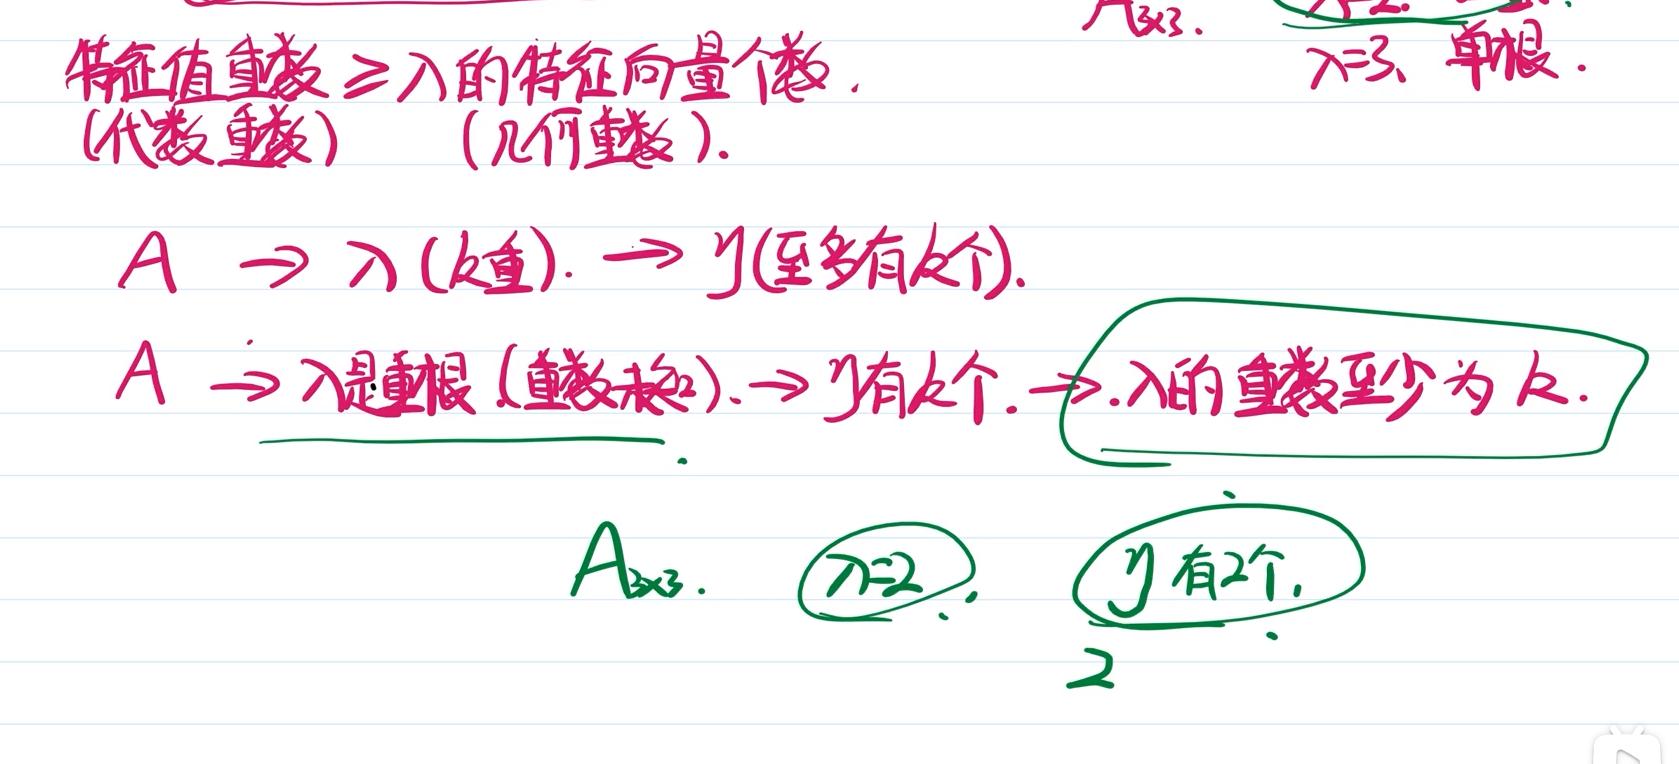 A₃ₓ₃. λ=2.
λ=3、单根.
特征值重数 ≥ λ的特征向量个数.
(代数重数) (几何重数).
A → λ(k重). → η(至多有k个).
A → λ是重根(重数未知). → η有k个. → λ的重数至少为k.
A₃ₓ₃. λ=2 η有2个.
2